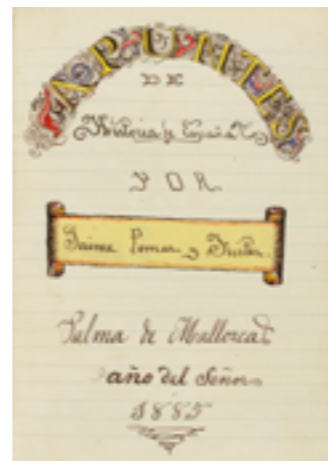 APUNTES
DE
Historia de España
POR
Jaime Pomar y Fuster
Palma de Mallorca
año del Señor
1885